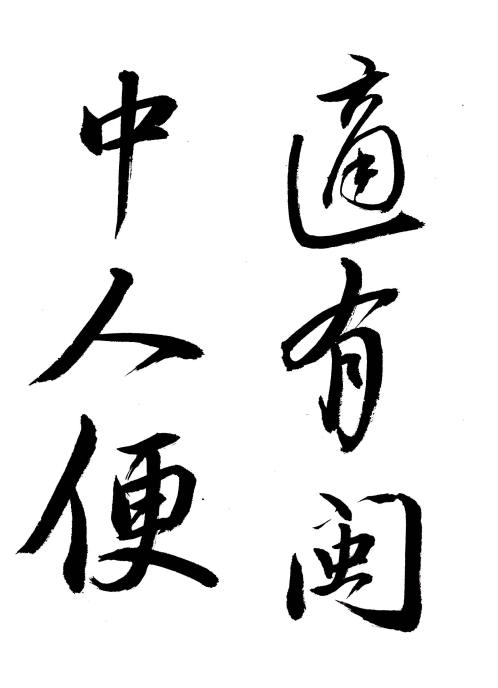 適有閩
中人便